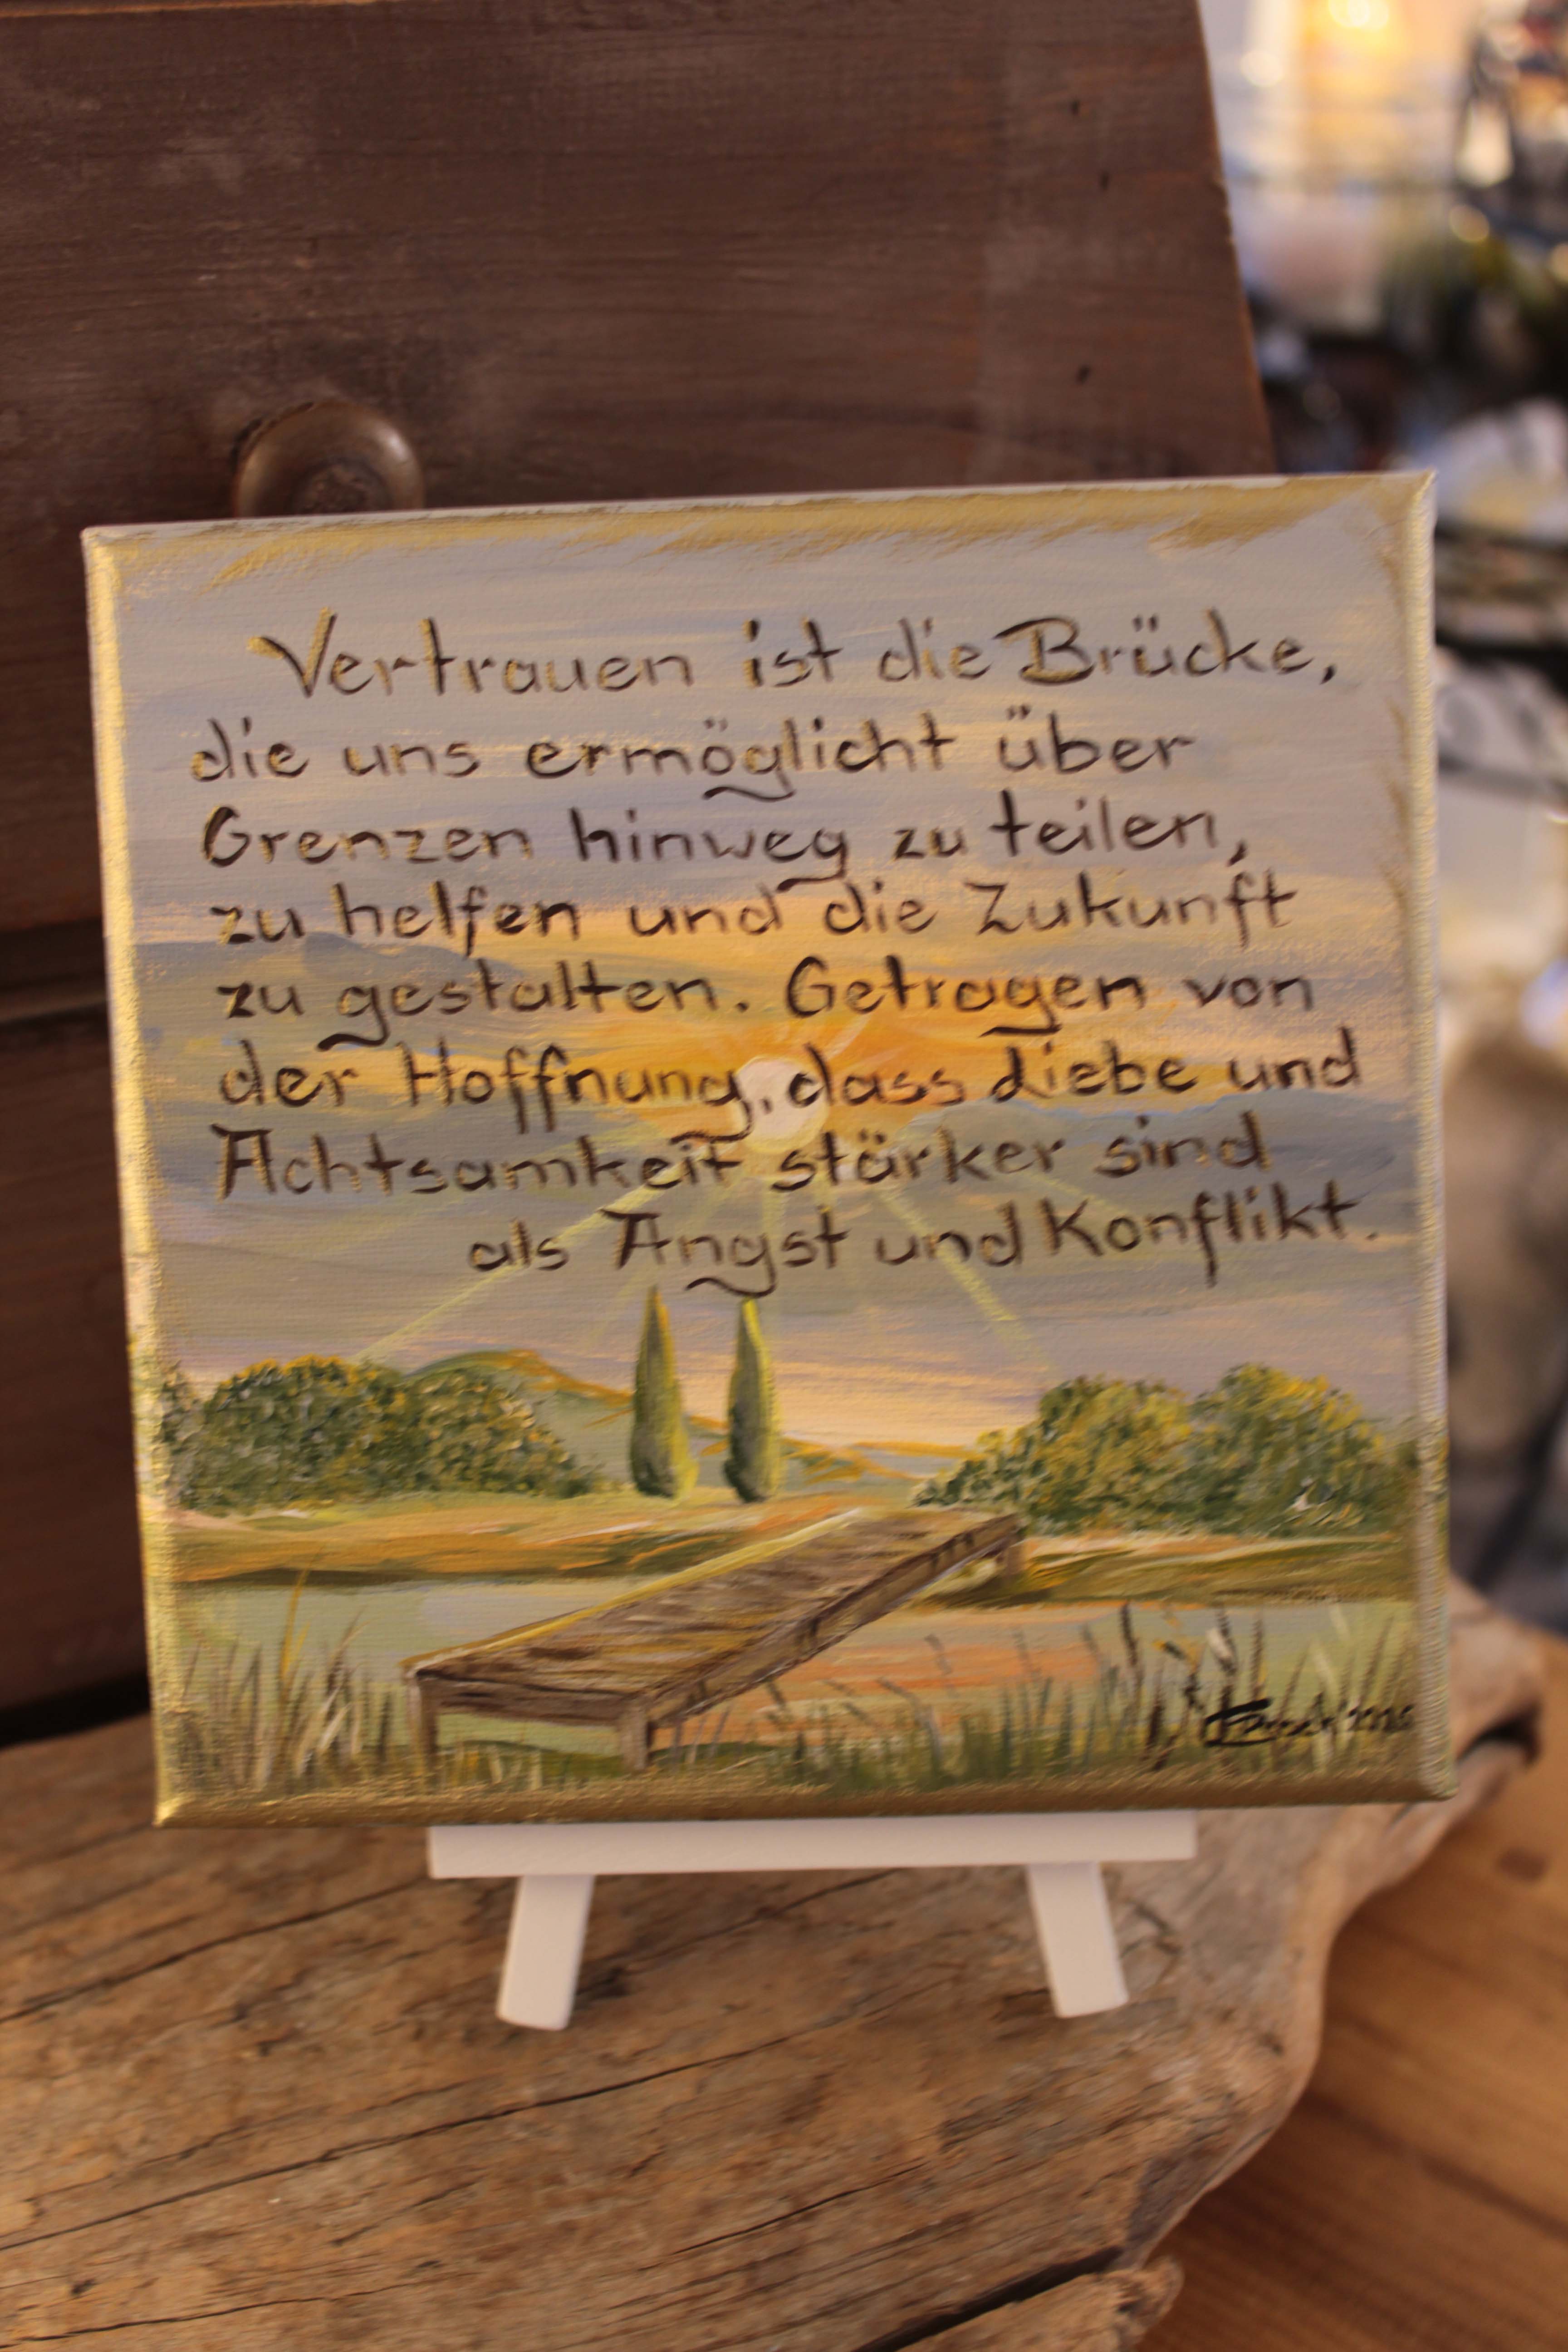 Vertrauen ist die Brücke,
die uns ermöglicht über
Grenzen hinweg zu teilen,
zu helfen und die Zukunft
zu gestalten. Getragen von
der Hoffnung, dass Liebe und
Achtsamkeit stärker sind
als Angst und Konflikt.